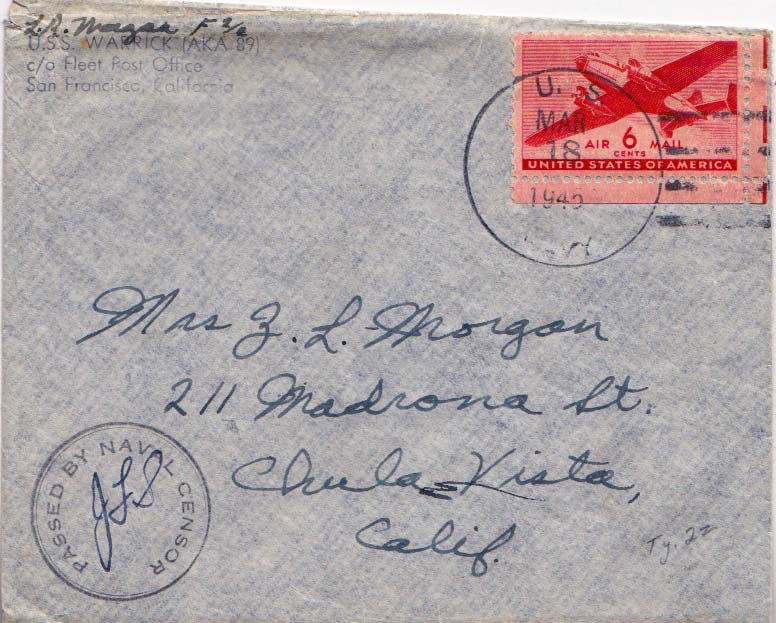 L.R. Morgan F 2/c
U.S.S. WARRICK (AKA 89)
c/o Fleet Post Office
San Francisco, California
U. S.
MAR
18
1945
NAVY
AIR 6 MAIL
CENTS
UNITED STATES OF AMERICA
Mrs Z. L. Morgan
211 Madrona St.
Chula Vista,
Calif.
PASSED BY NAVAL CENSOR
JLS
Ty. 2z